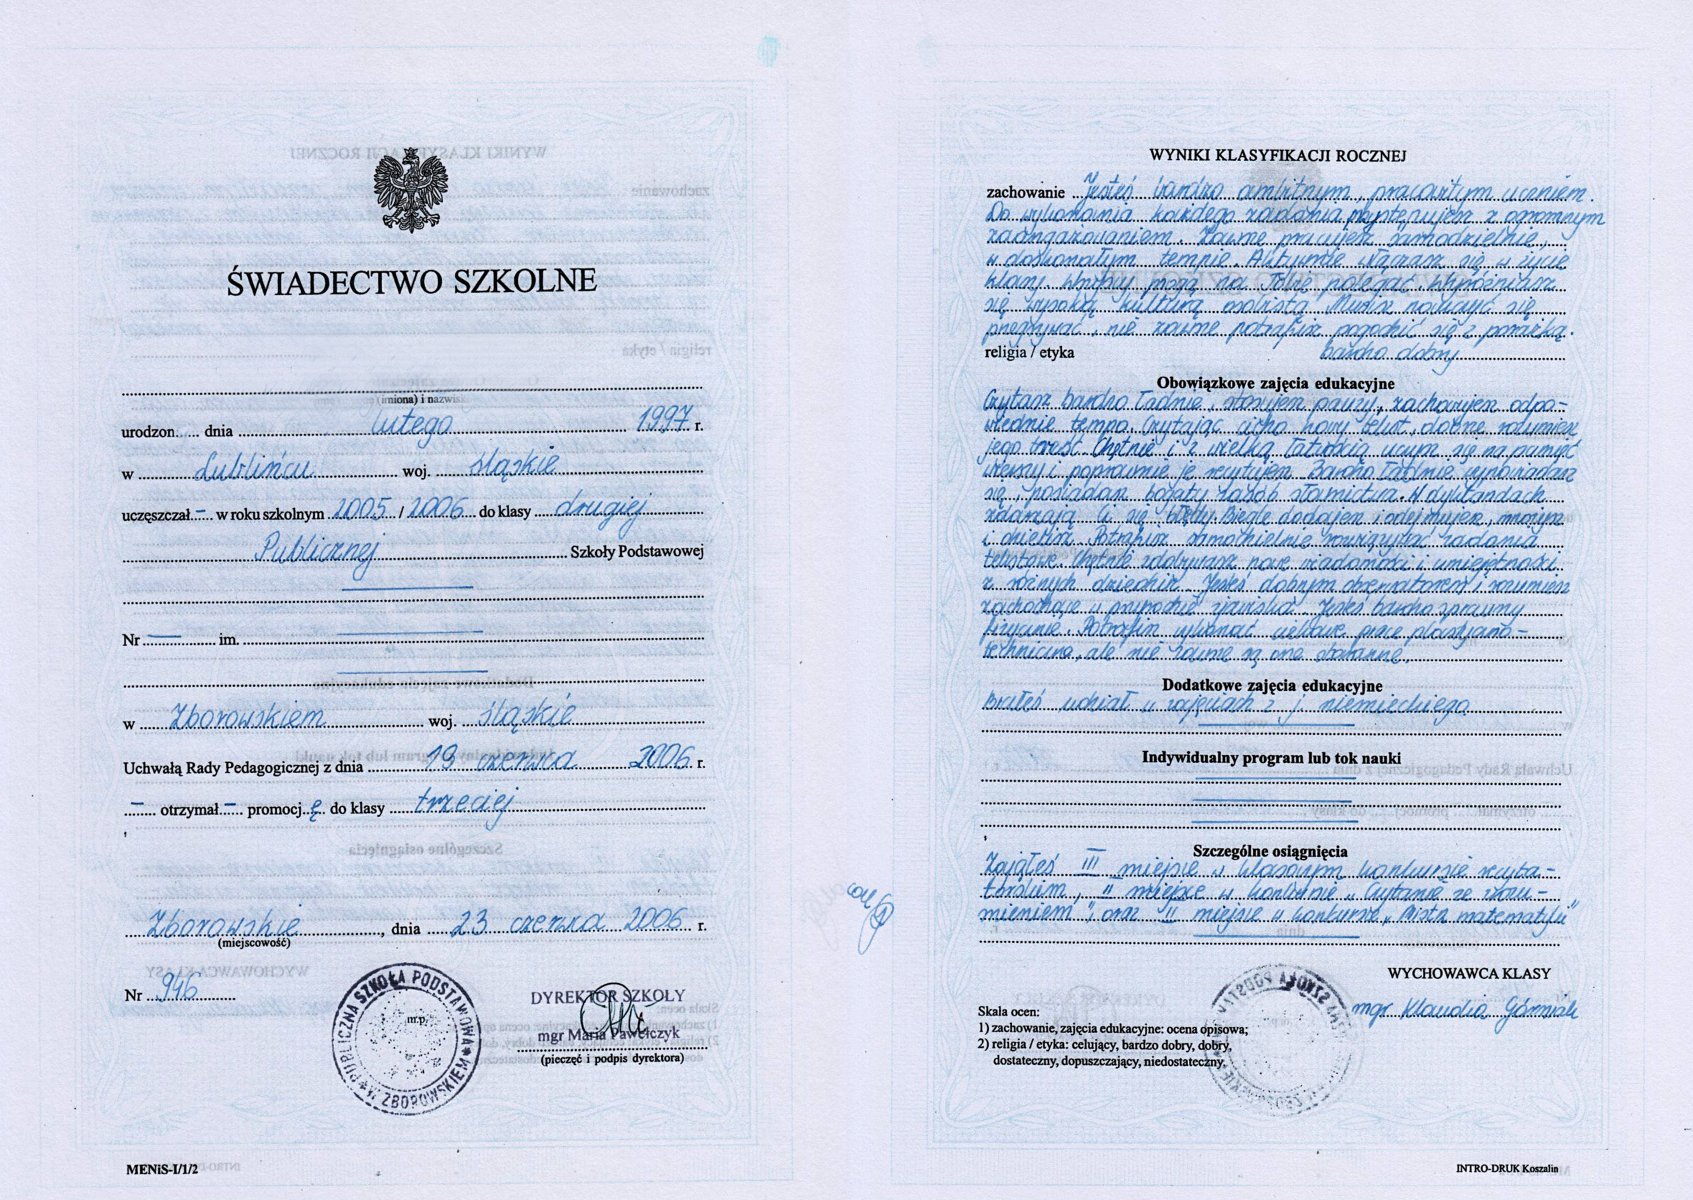 ŚWIADECTWO SZKOLNE
(imiona) i nazwis
urodzon...... dnia lutego 1997 r.
w Lublińcu woj. śląskie
uczęszczał - w roku szkolnym 2005 / 2006 do klasy drugiej
Publicznej Szkoły Podstawowej
Nr — im.
w Zborowskiem woj. śląskie
Uchwałą Rady Pedagogicznej z dnia 19 czerwca 2006 r.
- otrzymał - promocj ę do klasy trzeciej
Zborowskie, dnia 23 czerwca 2006 r.
(miejscowość)
Nr 946
PUBLICZNA SZKOŁA PODSTAWOWA
W ZBOROWSKIEM
m.p.
DYREKTOR SZKOŁY
mgr Maria Pawełczyk
(pieczęć i podpis dyrektora)
MENiS-I/1/2
WYNIKI KLASYFIKACJI ROCZNEJ
zachowanie Jesteś bardzo ambitnym, pracowitym uczniem.
Do wykonania każdego zadania przystępujesz z ogromnym
zaangażowaniem. Zawsze pracujesz samodzielnie,
w doskonałym tempie. Aktywnie włączasz się w życie
klasy. Wszyscy mogą na Tobie polegać. Wyróżniasz
się wysoką kulturą osobistą. Musisz nauczyć się
przegrywać, nie zawsze potrafisz pogodzić się z porażką.
religia / etyka bardzo dobry
Obowiązkowe zajęcia edukacyjne
Czytasz bardzo ładnie, stosujesz pauzy, zachowujesz odpo-
wiednie tempo. Czytając cicho nowy tekst, dobrze rozumiesz
jego treść. Chętnie i z wielką łatwością uczysz się na pamięć
wierszy i poprawnie je recytujesz. Bardzo ładnie wypowiadasz
się, posiadasz bogaty zasób słownictwa. W dyktandach
zdarzają Ci się błędy. Biegle dodajesz i odejmujesz, mnożysz
i dzielisz. Potrafisz samodzielnie rozwiązywać zadania
tekstowe. Chętnie zdobywasz nowe wiadomości i umiejętności
z różnych dziedzin. Jesteś dobrym obserwatorem i rozumiesz
zachodzące w przyrodzie zjawiska. Jesteś bardzo sprawny
fizycznie. Potrafisz wykonać ciekawe prace plastyczno-
techniczne, ale nie zawsze są one staranne.
Dodatkowe zajęcia edukacyjne
Brałeś udział w zajęciach z j. niemieckiego
Indywidualny program lub tok nauki
Szczególne osiągnięcia
Zająłeś III miejsce w klasowym konkursie recyta-
torskim, II miejsce w konkursie "Czytanie ze zrozu-
mieniem", oraz II miejsce w konkursie "Mistrz matematyki"
WYCHOWAWCA KLASY
mgr Klaudia Górniak
Skala ocen:
1) zachowanie, zajęcia edukacyjne: ocena opisowa;
2) religia / etyka: celujący, bardzo dobry, dobry,
dostateczny, dopuszczający, niedostateczny.
INTRO-DRUK Koszalin